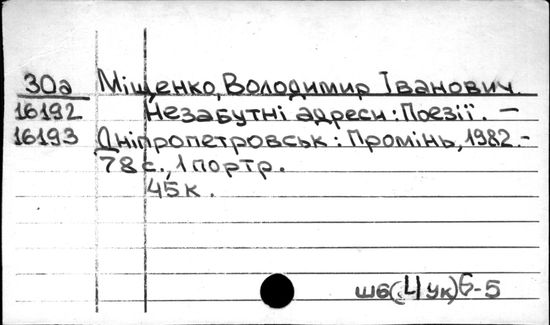 30а Міщенко, Володимир Іванович.
16192 Незабутні адреси: Поезії. —
16193 Дніпропетровськ: Промінь, 1982.-
78 с., 1 портр.
45 к.
Ш6(4Ук)6-5